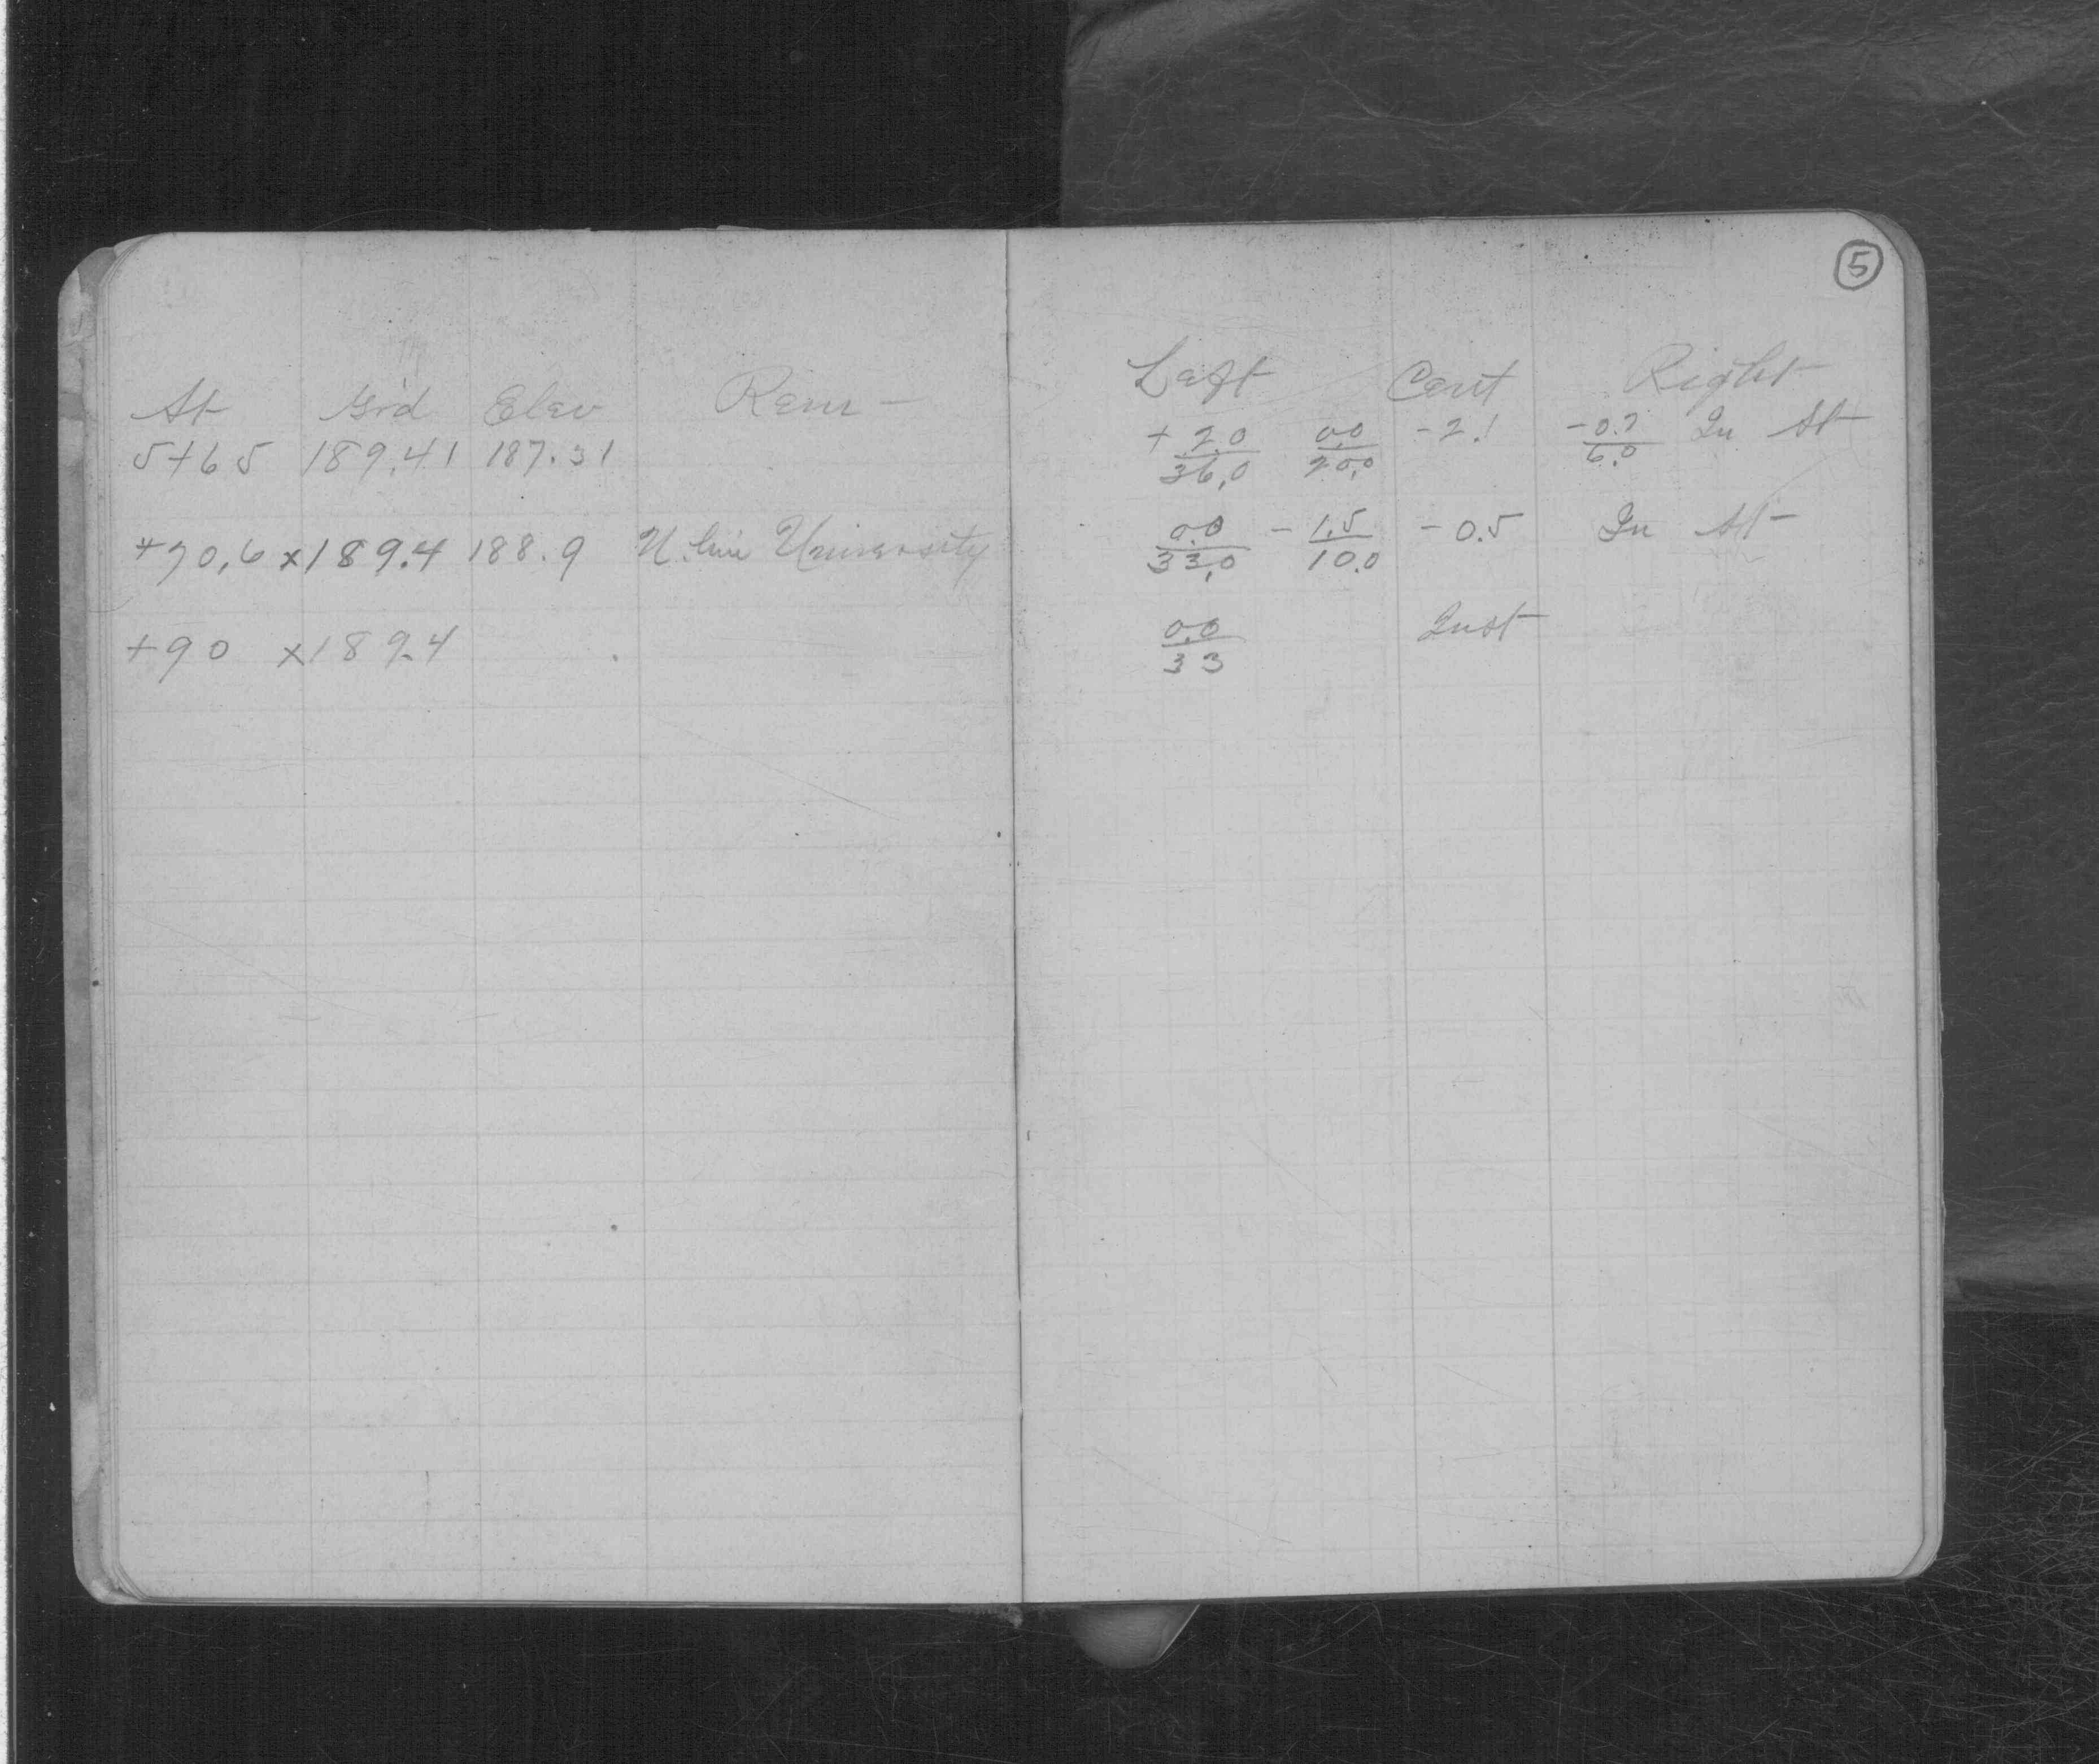 5
St Grd Elev Rem -
5+65 189.41 187.31
+70.6 x189.4 188.9 N. line University
+90 x189.4
Left Cent Right
+ 2.0/36.0 0.0/20.0 - 2.1 - 0.7/6.0 In St
0.0/33.0 - 1.5/10.0 - 0.5 In St
0.0/33 Inst